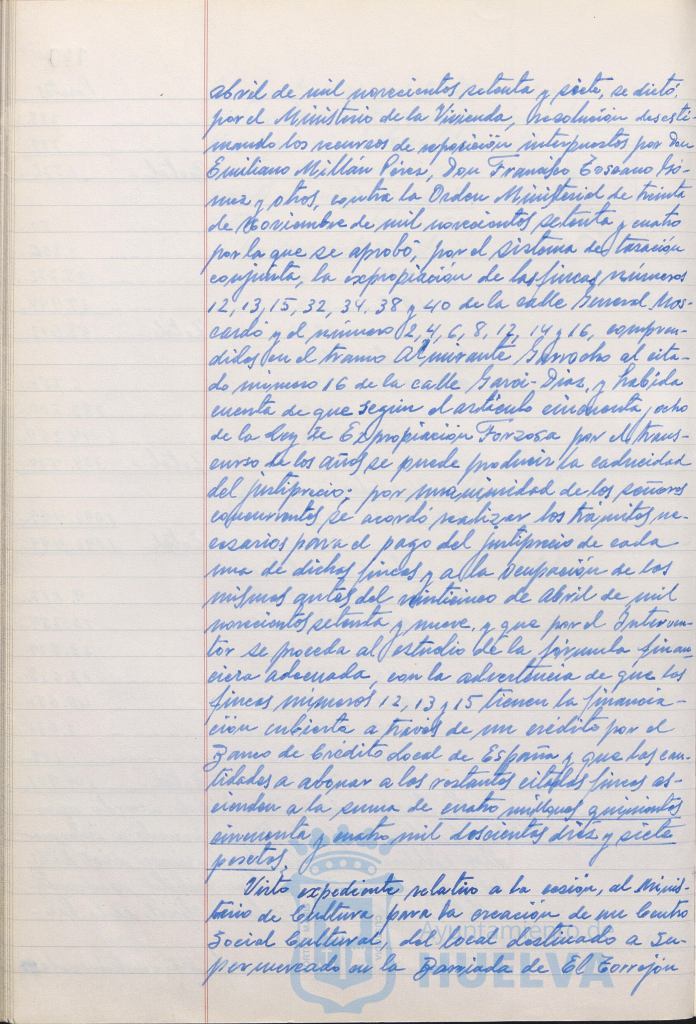 abril de mil novecientos setenta y siete, se dictó
por el Ministerio de la Vivienda, resolución desesti-
mando los recursos de reposición interpuestos por Don
Emiliano Millán Pérez, Don Francisco Toscano Gó-
mez y otros, contra la Orden Ministerial de treinta
de Noviembre de mil novecientos setenta y cuatro
por la que se aprobó, por el sistema de tasación
conjunta, la expropiación de las fincas números
12, 13, 15, 32, 34, 38 y 40 de la calle General Mos-
cardó y el número 2, 4, 6, 8, 12, 14 y 16, compren-
didos en el tramo Almirante Garrocho al cita-
do número 16 de la calle Garci-Diaz, y habida
cuenta de que según el artículo cincuenta y ocho
de la Ley de Expropiación Forzosa por el trans-
curso de los años se puede producir la caducidad
del justiprecio; por unanimidad de los señores
concurrentes se acordó realizar los trámites ne-
cesarios para el pago del justiprecio de cada
una de dichas fincas y a la ocupación de las
mismas antes del veinticinco de abril de mil
novecientos setenta y nueve, y que por el Interven-
tor se proceda al estudio de la fórmula finan-
ciera adecuada, con la advertencia de que las
fincas números 12, 13 y 15 tienen la financia-
ción cubierta a través de un crédito por el
Banco de Crédito Local de España y que las can-
tidades a abonar a las restantes citadas fincas as-
cienden a la suma de cuatro millones quinientos
cincuenta y cuatro mil doscientos diez y siete
pesetas.
Visto expediente relativo a la cesión, al Minis-
terio de Cultura, para la creación de un Centro
Social Cultural, del local destinado a Su-
permercado en la Barriada de El Torrejón
Ayuntamiento de
HUELVA